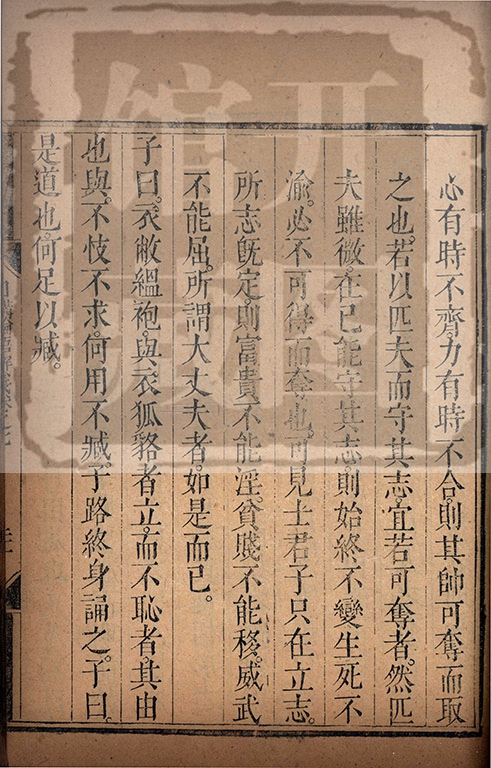 心有時不齊。力有時不合。則其帥可奪而取
之也。若以匹夫而守其志。宜若可奪者。然匹
夫雖微。在己能守其志。則始終不變。生死不
渝。必不可得而奪也。可見士君子只在立志。
所志既定。則富貴不能淫。貧賤不能移。威武
不能屈。所謂大丈夫者。如是而已。
子曰。衣敝縕袍。與衣狐貉者立。而不恥者。其由
也與。不忮不求。何用不臧。子路終身誦之。子曰。
是道也。何足以臧。